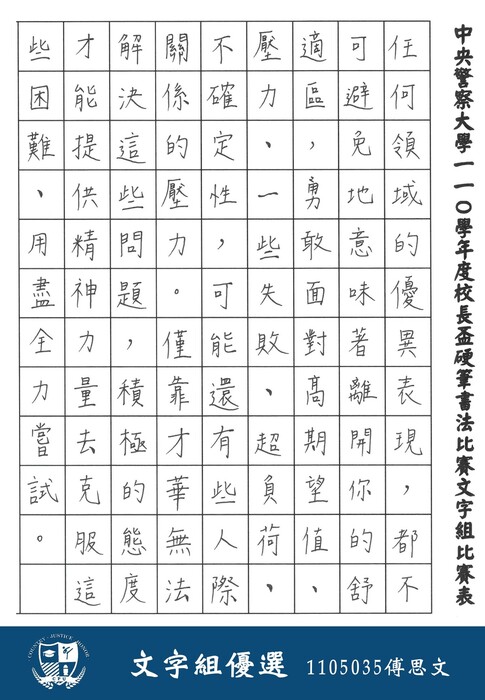 中央警察大學一一〇學年度校長盃硬筆書法比賽文字組比賽表
任何領域的優異表現，都不
可避免地意味著離開你的舒
適區，勇敢面對高期望值、
壓力、一些失敗、超負荷、
不確定性，可能還有些人際
關係的壓力。僅靠才華無法
解決這些問題，積極的態度
才能提供精神力量去克服這
些困難、用盡全力嘗試。
文字組優選 1105035傅思文